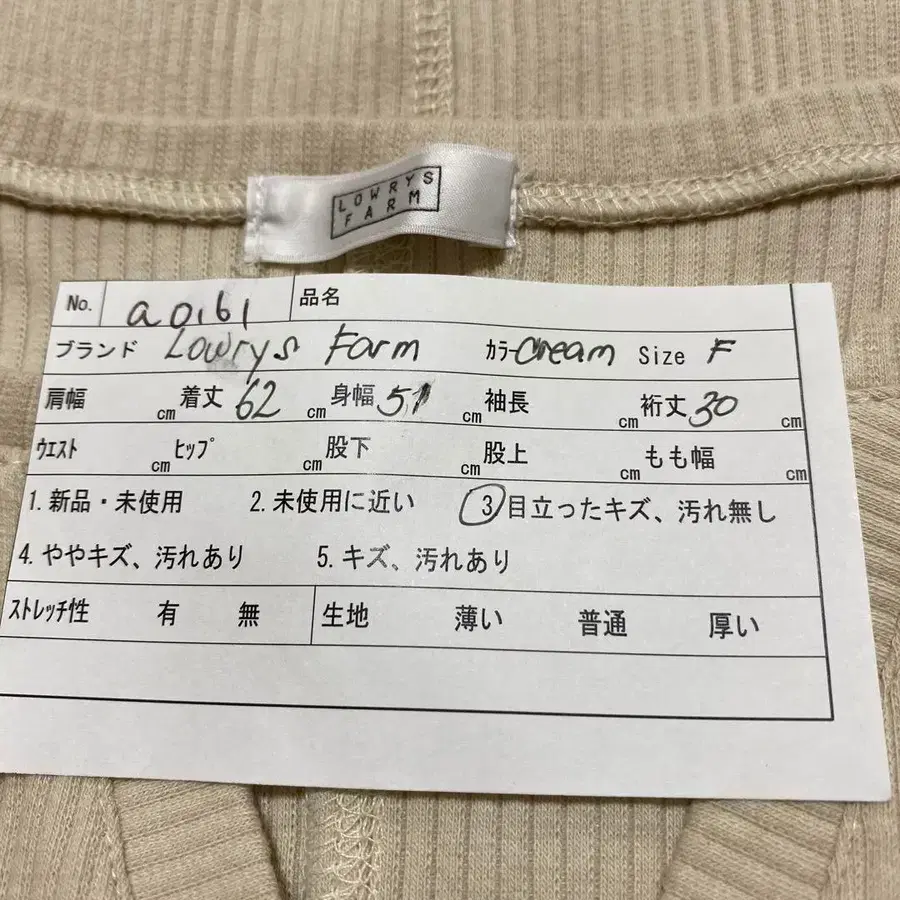 LOWRYS
FARM
No. a0161 品名
ブランド Lowrys Farm カラー cream Size F
肩幅 cm 着丈 62 cm 身幅 51 cm 袖長 cm 裄丈 30 cm
ウエスト cm ヒップ cm 股下 cm 股上 cm もも幅 cm
1. 新品・未使用 2. 未使用に近い 3 目立ったキズ、汚れ無し
4. ややキズ、汚れあり 5. キズ、汚れあり
ストレッチ性 有 無 生地 薄い 普通 厚い